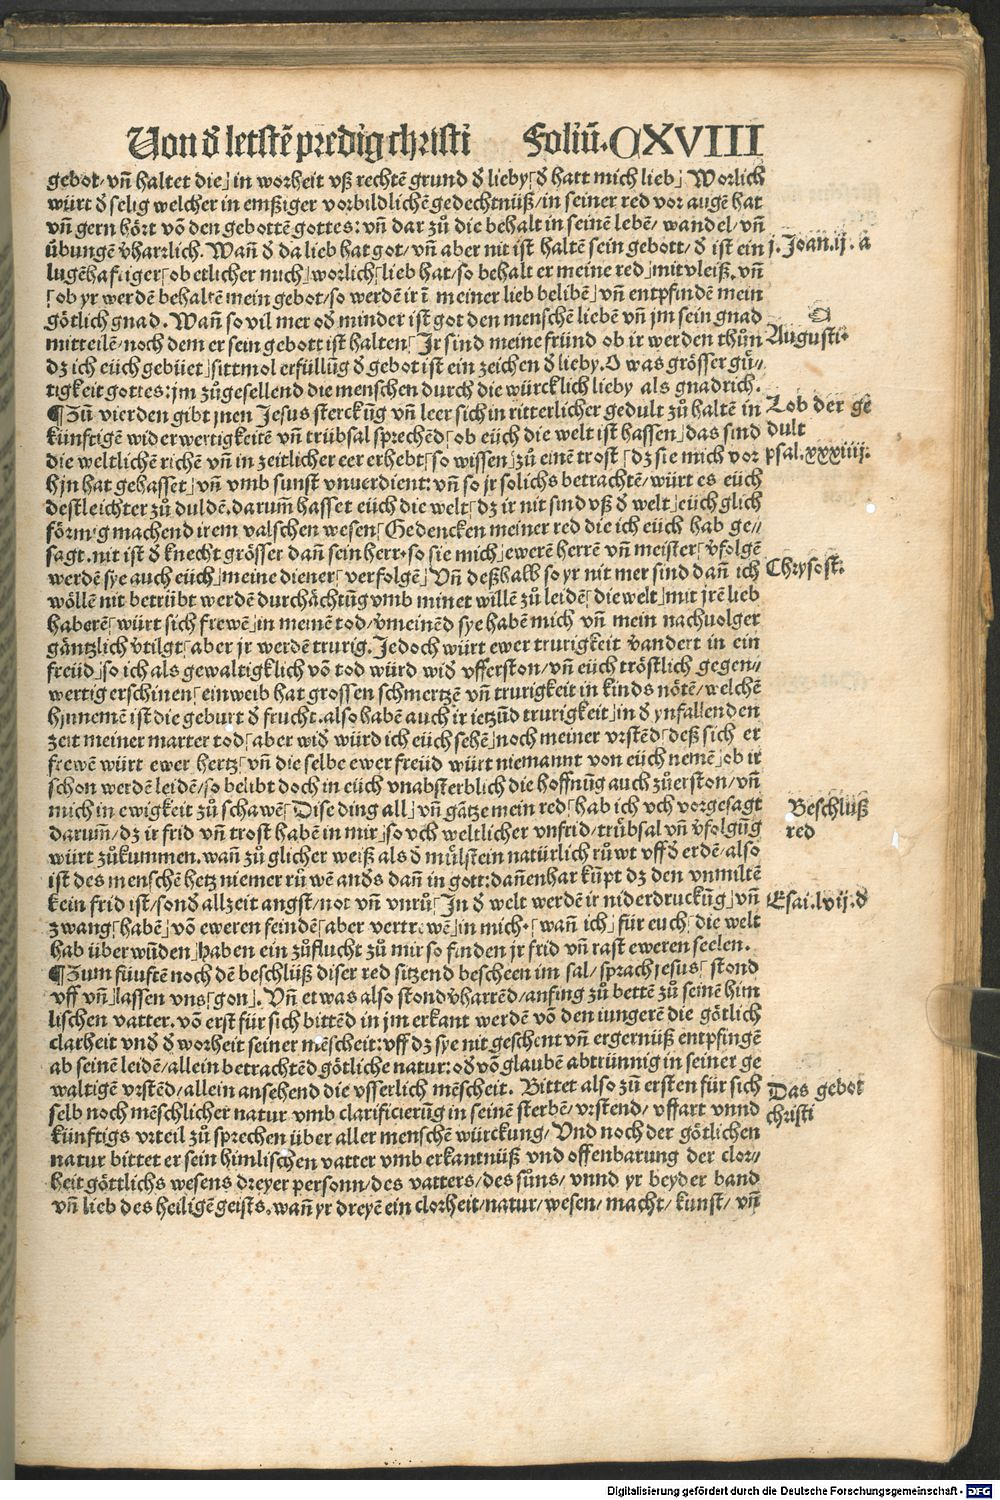 Von d̕ letstẽ predig christi Foliũ. CXVIII
gebot/ vñ haltet die⌋ in worheit vß rechtẽ grund d̕ lieby⌈ d̕ hatt mich lieb⌋ Worlich
würt d̕ selig welcher in emßiger vorbildlichẽ gedechtnüß/ in seiner red vor augẽ hat
vñ gern hört võ den gebottẽ gottes: vñ dar zů die behalt in seinẽ lebẽ/ wandel/ vñ
übungẽ v̕harrlich. Wañ d̕ da lieb hat got/ vñ aber nit ist haltẽ sein gebott/ d̕ ist ein
j. Joan. ij. a
lugẽhafftiger⌈ ob etlicher mich⌋ worlich⌈ lieb hat/ so behalt er meine red⌋ mit vleiß. vñ
⌈ob yr werdẽ behaltẽ mein gebot/ so werdẽ ir ĩ meiner lieb belibẽ⌋ vñ entpfindẽ mein
götlich gnad. Wañ so vil mer od̕ minder ist got den menschẽ liebẽ vñ jm sein gnad
mitteilẽ/ noch dem er sein gebott ist halten⌈ Jr sind meine fründ ob ir werden thůn
Augusti.
dz ich eüch gebüet⌋ sittmol erfüllũg d̕ gebot ist ein zeichen d̕ lieby. O was grösser gü⸗
tigkeit gottes: jm zůgesellend die menschen durch die würcklich lieby als gnadrich.
¶ Zũ vierden gibt jnen Jesus sterckũg vñ leer sich in ritterlicher gedult zů haltẽ in
Lob der ge
dult
künftigẽ widerwertigkeitẽ vñ trübsal sprechẽd⌈ ob eüch die welt ist hassen⌋ das sind
die weltlichẽ richẽ vñ in zeitlicher eer erhebt⌈ so wissen⌋ zů einẽ trost⌈ dz sie mich vor
psal. xxxiiij.
hin hat gehasset⌋ vñ vmb sunst vnuerdient: vñ so jr solichs betrachtẽ/ würt es eüch
destleichter zů duldẽ. darum̃ hasset eüch die welt⌈ dz ir nit sind vß d̕ welt⌋ eüch glich
förmig machend irem valschen wesen⌈ Gedencken meiner red die ich eüch hab ge⸗
sagt. nit ist d̕ knecht grösser dañ sein herr. so sie mich⌋ ewerẽ herrẽ vñ meister⌈ v̕folgẽ
werdẽ sye auch eüch⌋ meine diener⌈ verfolgẽ⌋ Vñ deßhalb so yr nit mer sind dañ ich
Chrysost.
wöllẽ nit betrübt werdẽ durchächtũg vmb minet willẽ zů leidẽ⌈ die welt⌋ mit jrẽ lieb
haberẽ⌈ würt sich frewẽ⌋ in meinẽ tod/ v̕meinẽd sye habẽ mich vñ mein nachuolger
gäntzlich v̕tilgt⌈ aber jr werdẽ trurig. Jedoch würt ewer trurigkeit v̕andert in ein
freüd⌋ so ich als gewaltigklich võ tod würd wid̕ vfferston/ vñ eüch tröstlich gegen⸗
wertig erschinen⌈ ein weib hat grossen schmertzẽ vñ trurigkeit in kinds nötẽ/ welchẽ
hinnemẽ ist die geburt d̕ frucht. also habẽ auch ir ietzũd trurigkeit⌋ in d̕ ynfallenden
zeit meiner marter tod⌈ aber wid̕ würd ich eüch sehẽ⌋ noch meiner vrstẽd⌈ deß sich er
frewẽ würt ewer hertz⌈ vñ die selbe ewer freüd würt niemannt von eüch nemẽ⌋ ob ir
schon werdẽ leidẽ/ so belibt doch in eüch vnabsterblich die hoffnũg auch zů erston/ vñ
mich in ewigkeit zů schawẽ⌈ Dise ding all⌋ vñ gãtze mein red⌈ hab ich vch vorgesagt
Beschlüß
red
darum̃/ dz ir frid vñ trost habẽ in mir⌋ so vch weltlicher vnfrid/ trübsal vñ v̕folgũg
würt zůkummen. wañ zů glicher weiß als d̕ mülstein natürlich růwt vff d̕ erdẽ/ also
ist des menschẽ hetz niemer růwẽ and̕s dañ in gott: dañenhar kũpt dz den vnmiltẽ
kein frid ist/ sond̕ allzeit angst/ not vñ vnrů⌈ In d̕ welt werdẽ ir niderdruckũg⌋ vñ
Esai. lvij. d
zwang⌈ habẽ⌋ võ eweren feindẽ⌈ aber vertrewẽ⌋ in mich. ⌈wañ ich⌋ für euch⌈ die welt
hab überwũden⌋ haben ein zůflucht zů mir so finden jr frid vñ rast eweren seelen.
¶ Zum fünftẽ noch dẽ beschlüß diser red sitzend bescheen im sal/ sprach jesus⌈ stond
vff vñ⌋ lassen vns⌈ gon⌋. Vñ etwas also stond v̕harrẽd/ anfing zů bettẽ zů seinẽ him
lischen vatter. võ erst für sich bittẽd in jm erkant werdẽ võ den iungerẽ die götlich
clarheit vnd d̕ worheit seiner mẽscheit: vff dz sye nit geschent vñ ergernüß entpfingẽ
ab seinẽ leidẽ/ allein betrachtẽd götliche natur: od̕ võ glaubẽ abtrünnig in seiner ge
waltigẽ vrstẽd/ allein ansehend die vsserlich mẽscheit. Bittet also zũ ersten für sich
Das gebet
christi
selb noch mẽschlicher natur vmb clarificierũg in seinẽ sterbẽ/ vrstend/ vffart vnnd
künftigs vrteil zů sprechen über aller menschẽ würckung/ Vnd noch der götlichen
natur bittet er sein himlischen vatter vmb erkantnüß vnd offenbarung der clor⸗
heit göttlichs wesens dreyer personn/ des vatters/ des sůns/ vnnd yr beyder band
vñ lieb des heiligẽ geists. wañ yr dreyẽ ein clorheit/ natur/ wesen/ macht/ kunst/ vñ
Digitalisierung gefördert durch die Deutsche Forschungsgemeinschaft - DFG